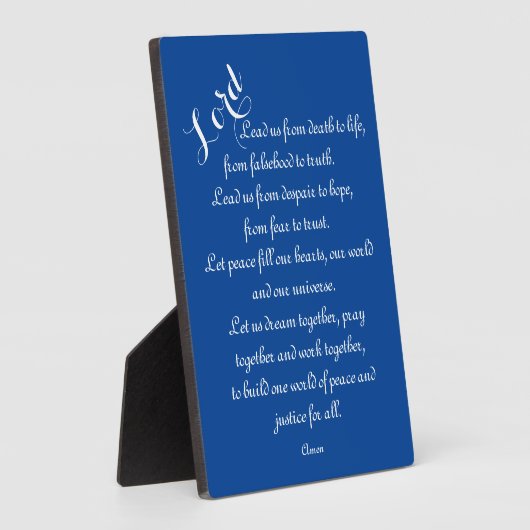 Lord
Lead us from death to life,
from falsehood to truth.
Lead us from despair to hope,
from fear to trust.
Let peace fill our hearts, our world
and our universe.
Let us dream together, pray
together and work together,
to build one world of peace and
justice for all.
Amen